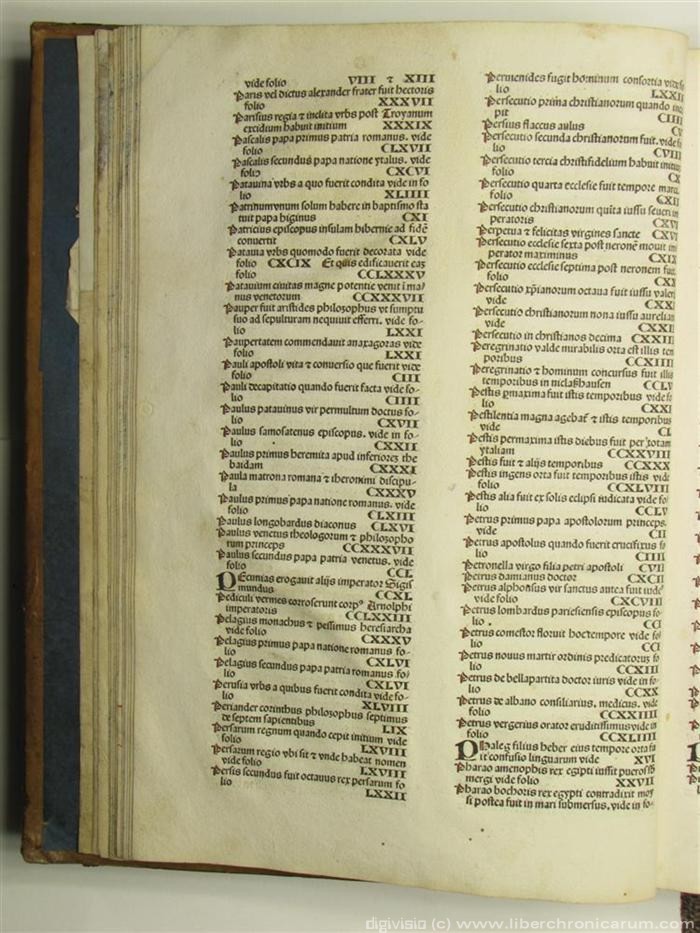 vide folio VIII ⁊ XIII
Paris vel dictus alexander frater fuit hectoris
folio XXXVII
Parisius regia ⁊ inclita vrbs post Troyanum
excidium habuit initium XXXIX
Pascalis papa primus patria romanus. vide
folio CLXVII
Pascalis secundus papa natione ytalus. vide
folio CXCVI
Patauina vrbs a quo fuerit condita vide in fo
lio XLIIII
Patrinum vnum solum habere in baptismo sta
tuit papa higinus CXI
Patricius episcopus insulam hibernie ad fidē
conuertit CXLV
Pataua vrbs quomodo fuerit decorata vide
folio CXCIX Et quis edificauerit eaꝫ
folio CCLXXXV
Patauium ciuitas magne potentie venit ī ma/
nus venetorum CCXXXVII
Pauper fuit aristides philosophus vt sumptu
suo ad sepulturam nequiuit efferri. vide fo-
lio LXXI
Paupertatem commendauit anaxagoras vide
folio LXXI
Pauli apostoli vita ⁊ conuersio que fuerit vide
folio CIII
Pauli decapitatio quando fuerit facta vide fo-
lio CIIII
Paulus patauinus vir permultum doctus fo-
lio CXVII
Paulus samosatenus episcopus. vide in fo-
lio CXXII
Paulus primus heremita apud inferiorez the
baidam CXXXI
Paula matrona romana ⁊ iheronimi discipu-
la CXXXV
Paulus primus papa natione romanus. vide
folio CLXIII
Paulus longobardus diaconus CLXVI
Paulus venetus theologorum ⁊ philosopho
rum princeps CCXXXVII
Paulus secundus papa patria venetus. vide
folio CCL
PEcunias erogauit alijs imperator Sigis
mundus CCXL
Pediculi vermes corroserunt corpꝰ Arnolphi
imperatoris CCLXXIII
Pelagius monachus ⁊ pessimus heresiarcha
vide folio CXXXV
Pelagius primus papa natione romanus fo-
lio CXLVI
Pelagius secundus papa patria romanus fo/
lio CXLVI
Perusia vrbs a quibus fuerit condita vide fo-
lio XLVIII
Periander corinthus philosophus septimus
de septem sapientibus LIX
Persarum regnum quando cepit initium vide
folio LXVIII
Persarum regio vbi sit ⁊ vnde habeat nomen
vide folio LXVIII
Persis secundus fuit octauus rex persarum fo
lio LXXII
Permenides fugit hominum consortia vide fo
lio LXXII
Persecutio prima christianorum quando
pit CIIII
Persius flaccus aulus
Persecutio secunda christianorum fuit. vide fo
lio CVIII
Persecutio tercia christifidelium habuit
folio CX
Persecutio quarta ecclesie fuit tempore
folio CXII
Persecutio christianorum quīta iussu seueri im
peratoris CXVI
Perpetua ⁊ felicitas virgines sancte CXVI
Persecutio ecclesie sexta post neronē mouit im
perator maximinus CXIX
Persecutio ecclesie septima post neronem fuit
folio
Persecutio xp̄ianorum octaua fuit iussu valeri
vide
Persecutio christianorum nona iussu aurelian
vide
Persecutio in christianos decima CXXIII
Peregrinatio valde mirabilis orta est illis tem
poribus CCXIIII
Peregrinatio ⁊ hominum concursus fuit illis
temporibus in niclaßhausen CCLV
Pestis ꝑmaxima fuit istis temporibus vide fo
lio
Pestilentia magna agebat̄ ⁊ istis temporibus
vide
Pestis permaxima istis diebus fuit per totam
ytaliam CCXXVIII
Pestis fuit ⁊ alijs temporibus CCXXX
Pestis ingens orta fuit temporibus istis vide
folio CCXLVIII
Pestis alia fuit ex solis eclipsi iudicata vide fo/
lio CCLV
Petrus primus papa apostolorum princeps.
vide CII
Petrus apostolus quando fuerit crucifixus fo
lio CIIII
Petronella virgo filia petri apostoli CVII
Petrus damianus doctor CXCII
Petrus alphonsus vir sanctus autea fuit iudeꝰ
vide folio CXCVIII
Petrus lombardus parisiensis episcopus fo/
lio. CCI
Petrus comestor floruit hoc tempore vide fo/
lio CCI
Petrus nouus martir ordinis predicatoruꝫ fo
lio CCXIII
Petrus de bellapartita doctor iuris vide in fo-
lio CCXX
Petrus de albano consiliarius. medicus. vide
folio CCXXIIII
Petrus vergerius orator eruditissimus vide in
folio CCXLIIII
PHaleg filius heber eius tempore orta fu
it confusio linguarum vide XVI
Pharao amenophis rex egipti iussit pueros sb
mergi vide folio XXVII
Pharao bochoris rex egypti contradixit moy
si postea fuit in mari submersus. vide in fo-
digivisio (c) www.liberchronicarum.com